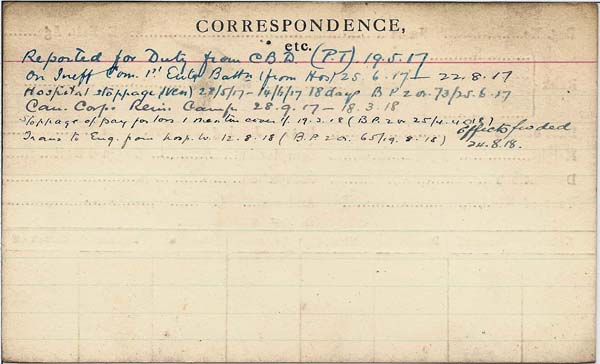 CORRESPONDENCE,
etc.
Reported for Duty from C.B.D. (P.T). 19.5.17
On Ineff Com. 1st Entg Battn (from Hos) 25.6.17 - 22.8.17
Hospital stoppage (Ven) 28/5/17 - 14/6/17 18 days B.P.2a. 73/25.6.17
Can. Corps Rein. Camp 28.9.17 - 18.3.18
Stoppage of pay for loss 1 mess tin cover 19.3.18 (B.P.2a 25/4.4.18)
Effects fwded
Trans to Eng. from hosp. W. 12.8.18 (B.P.2a. 65/19.8.18)
24.8.18.